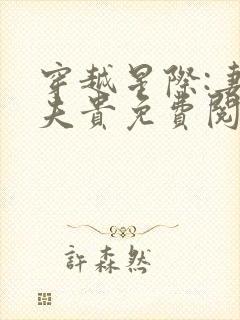 穿越星際:妻
夫貴免費閱
許森然